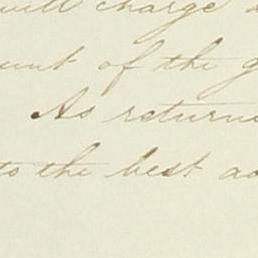 will charge
of the
As return
to the best